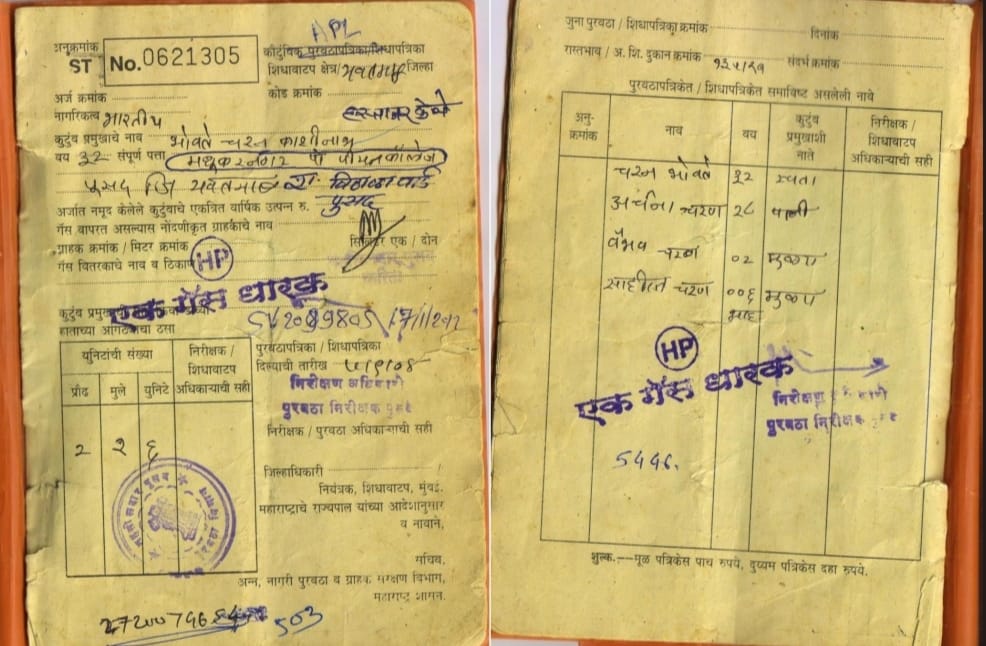 APL
अनुक्रमांक ST No. 0621305
कौटुंबिक पुरवठापत्रिका/शिधापत्रिका
शिधावाटप क्षेत्र/यवतमाळ जिल्हा
अर्ज क्रमांक
कोड क्रमांक
नागरिकत्व भारतीय
हस्तांतर केले
कुटुंब प्रमुखाचे नाव भोवते चरन काशीनाथ
वय ३२ संपूर्ण पत्ता मधूकरनगर पो
पूसद जि यवतमाळ रा. विठाळा वार्ड
पुसद
अर्जात नमूद केलेले कुटुंबाचे एकत्रित वार्षिक उत्पन्न रु.
गॅस वापरत असल्यास नोंदणीकृत ग्राहकाचे नाव
ग्राहक क्रमांक / मिटर क्रमांक सिलिंडर एक / दोन
गॅस वितरकाचे नाव व ठिकाण
HP
एक गॅस धारक
कुटुंब
हाताच्या अंगठ्याचा ठसा
युनिटांची संख्या
निरीक्षक / शिधावाटप अधिकाऱ्याची सही
प्रौढ मुले युनिटे
2 २ ६
पुरवठापत्रिका / शिधापत्रिका
दिल्याची तारीख
निरीक्षण अधिकारी
पुरवठा निरीक्षक पुसद
निरीक्षक / पुरवठा अधिकाऱ्याची सही
जिल्हाधिकारी
नियंत्रक, शिधावाटप, मुंबई.
महाराष्ट्राचे राज्यपाल यांच्या आदेशानुसार
व नावाने,
सचिव,
अन्न, नागरी पुरवठा व ग्राहक संरक्षण विभाग,
महाराष्ट्र शासन.
503
जुना पुरवठा / शिधापत्रिका क्रमांक दिनांक
रास्तभाव / अ. शि. दुकान क्रमांक संदर्भ क्रमांक
पुरवठापत्रिकेत / शिधापत्रिकेत समाविष्ट असलेली नावे
अनुक्रमांक नाव वय कुटुंब प्रमुखाशी नाते निरीक्षक / शिधावाटप अधिकाऱ्याची सही
चरन भोवते ३२ स्वता
अर्चना चरण २८ पत्नी
वैभव चरण ०२ मुलगा
चरण ००६ मुलगा
माह
HP
एक गॅस धारक
निरीक्षण
पुरवठा निरीक्षक
5446.
शुल्क.—मूळ पत्रिकेस पाच रुपये, दुय्यम पत्रिकेस दहा रुपये.